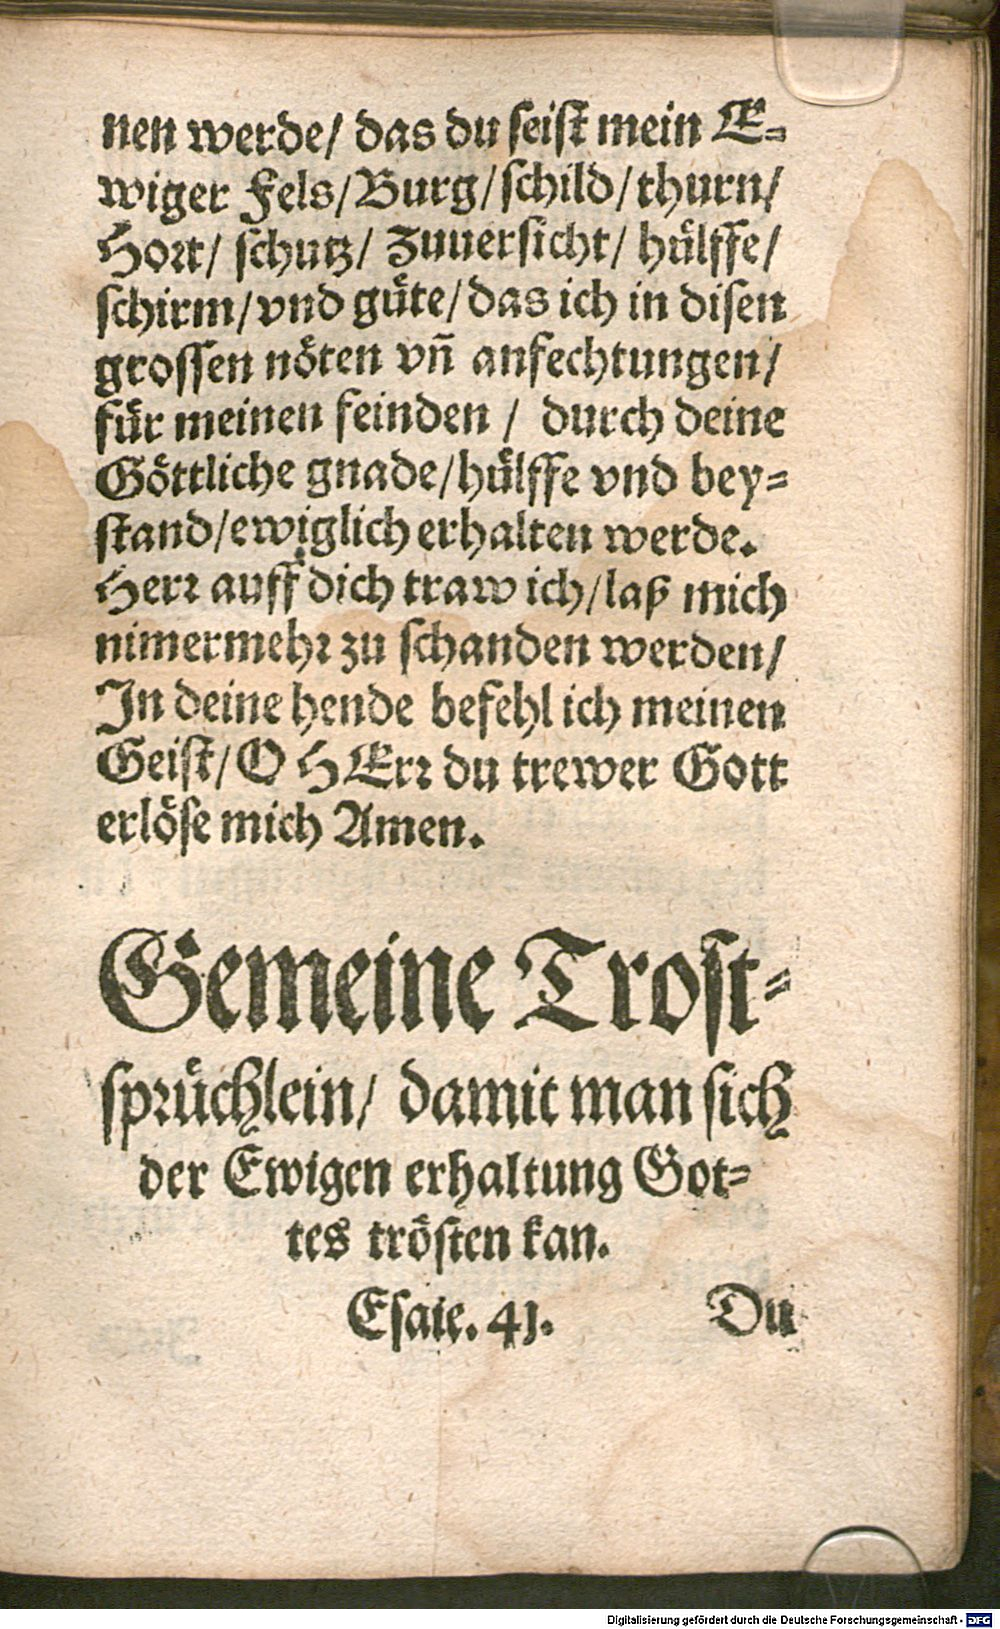 nen werde/ das du seist mein E-
wiger Fels/Burg/schild/thurn/
Hort/ schutz/ Zuuersicht/ hülffe/
schirm/vnd güte/das ich in disen
grossen nöten vñ anfechtungen/
für meinen feinden / durch deine
Göttliche gnade/hülffe vnd bey-
stand/ewiglich erhalten werde.
Herr auff dich traw ich/laß mich
nimermehr zu schanden werden/
In deine hende befehl ich meinen
Geist/O HErr du trewer Gott
erlöse mich Amen.
Gemeine Trost-
sprüchlein/ damit man sich
der Ewigen erhaltung Got-
tes trösten kan.
Esaie. 41. Du
Digitalisierung gefördert durch die Deutsche Forschungsgemeinschaft - DFG